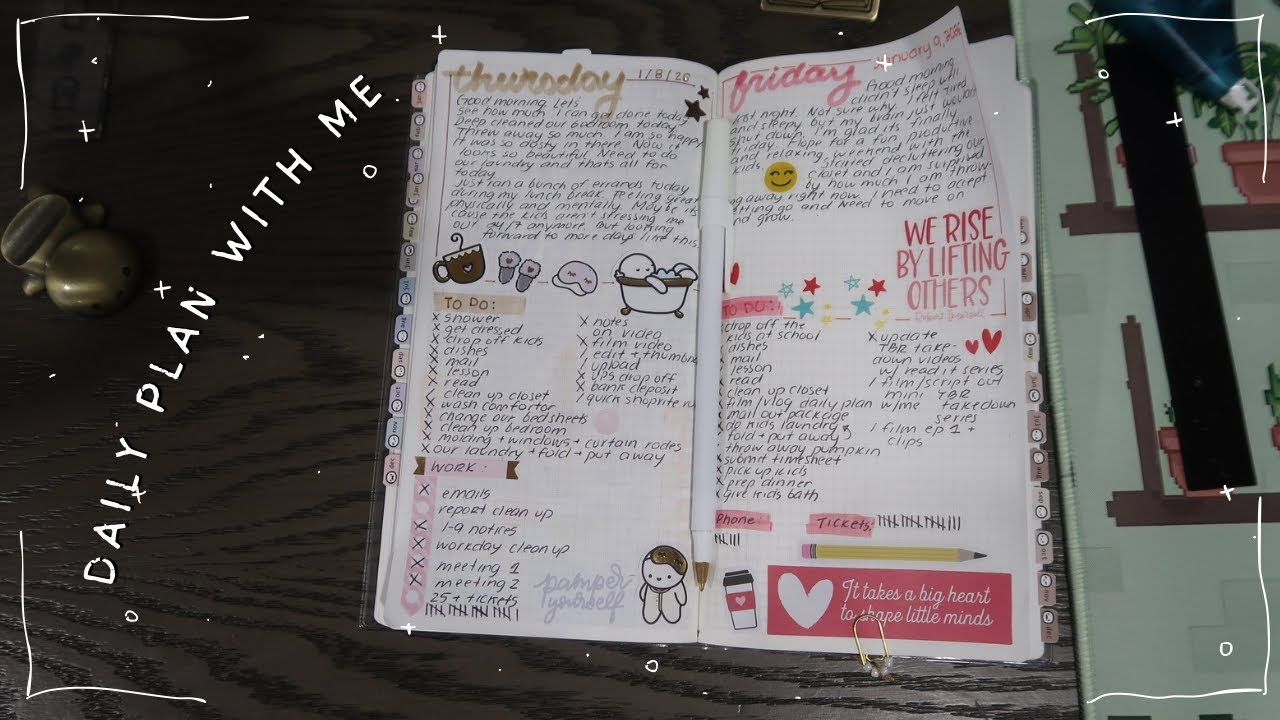 DAILY PLAN WITH ME
thursday
1/8/26
Good morning. Lets
see how much I can get done today.
Deep cleaned our bedroom today.
Threw away so much. I am so happy
It was so dusty in there. Now it
looms so beautiful. Need to do
our laundry and thats all for
today.
Just ran a bunch of errands today
during my lunch break. Feeling great
physically and mentally. Maybe its
cause the kids aren't stressing me
out. But looking
forward to more days like this.
TO DO:
x shower
x get dressed
x drop off kids
x dishes
x mail
x lesson
x read
x clean up closet
x wash comfortor
x change our bedsheets
x clean up bedroom
x molding + windows + curtain rodes
x our laundry + fold + put away
x notes
on video
x film video
/ edit + thumbna
x upload
x ups drop off
x bank deposit
/ quick shoprite ru
WORK:
x emails
report clean up
x 1-9 notices
x workday clean up
x meeting 1
x meeting 2
25+ tickets
pamper
yourself
friday
January 9, 2026
Good morning
didn't sleep well
last night. Not sure why. I felt tired
and sleepy but my brain just wouldn't
shut down. I'm glad its finally
friday. Hope for a fun, productive
and relaxing weekend with the
kids.
started decluttering our
closet and I am surprised
by how much I am throw
ing away right now. I need to accept
letting go and need to move on
and grow.
WE RISE
BY LIFTING
OTHERS
Robert Ingersoll
TO DO:
x drop off the
kids at school
x dishes
x mail
x lesson
x read
x clean up closet
x film/vlog daily plan
x mail out package
x do kids laundry
fold + put away
x throw away pumpkin
x submit timesheet
x pick up kids
x prep dinner
x give kids bath
x update
TBR take-
down videos
w/ read it series
/ film/script out
mini TBR
w/me takedown
series
/ film ep 1 +
clips
Phone
Tickets:
It takes a big heart
to shape little minds